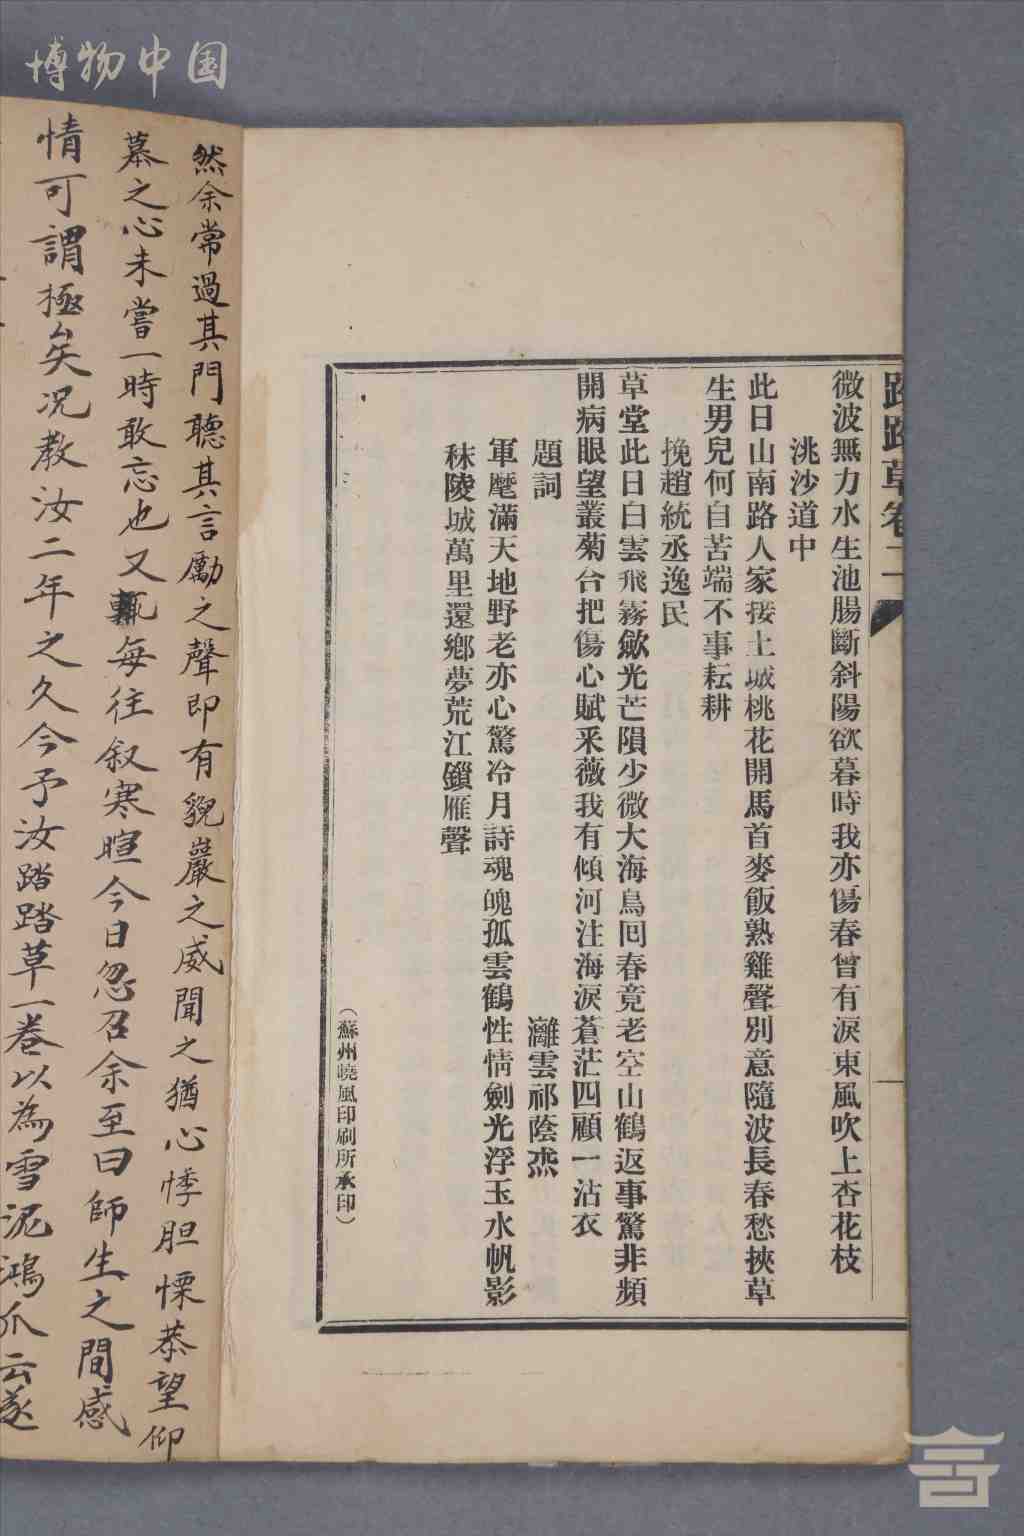 博物中国
踏踏草卷二
一
微波無力水生池腸斷斜陽欲暮時我亦傷春曾有淚東風吹上杏花枝
洮沙道中
此日山南路人家接土城桃花開馬首麥飯熟雞聲別意隨波長春愁挾草
生男兒何自苦端不事耘耕
挽趙統丞逸民
草堂此日白雲飛霧歛光芒隕少微大海鳥回春竟老空山鶴返事驚非頻
開病眼望叢菊合把傷心賦采薇我有傾河注海淚蒼茫四顧一沾衣
題詞
灕雲祁蔭杰
軍麾滿天地野老亦心驚冷月詩魂魄孤雲鶴性情劍光浮玉水帆影
秣陵城萬里還鄉夢荒江鎖雁聲
（蘇州曉風印刷所承印）
然余常過其門聽其言勵之聲即有貌嚴之威聞之猶心悸胆慄恭望仰
慕之心未嘗一時敢忘也又輒每往叙寒暄今日忽召余至曰師生之間感
情可謂極矣况教汝二年之久今予汝踏踏草一卷以為雪泥鴻爪云遂